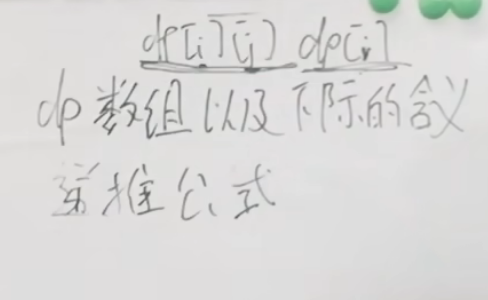 dp[i][j] dp[i]
dp数组以及下标的含义
递推公式